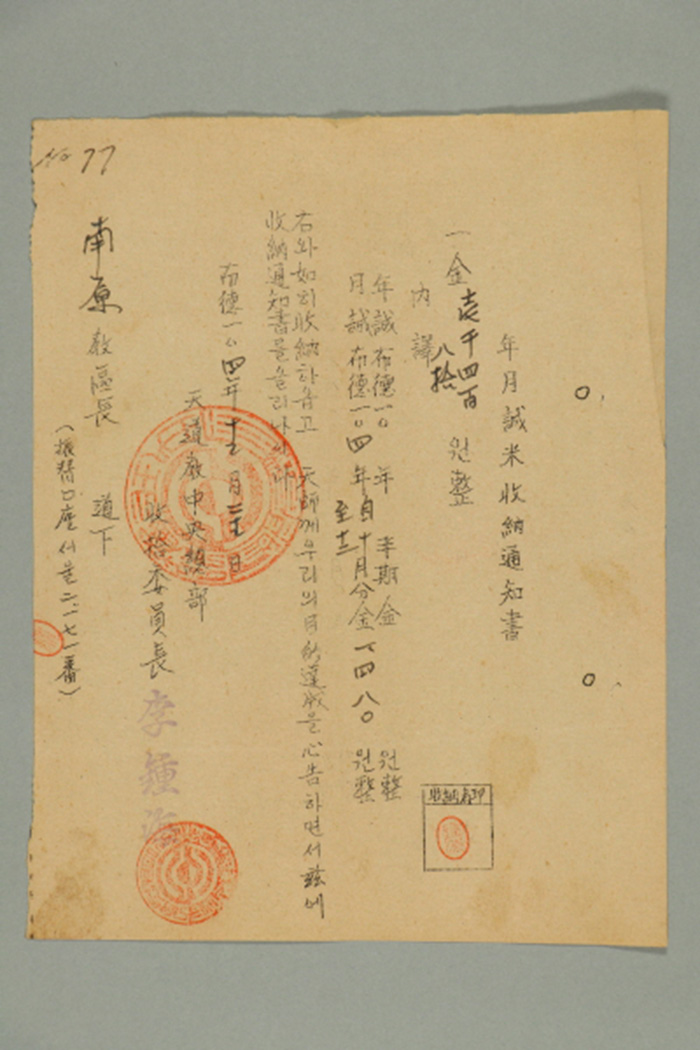 年月誠米收納通知書
一金壱千四百八拾원整
內譯
年誠布德一〇 年 半期金 원整
月誠布德一〇四年自十至十二月分金一四八〇원整
右와如히收納하옵고 天師께우리의目的達成을心告하면서玆에
收納通知書를올리나이다
布德一〇四年十二月二十日
天道敎中央總部
收拾委員長 李鍾海
南原敎區長 道下
(振替口座서울二一七一番)
No 77